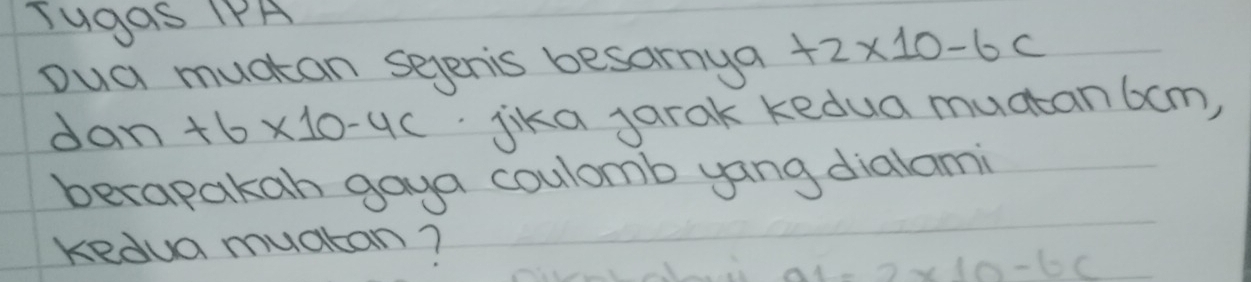 Tugas IPA
Dua muatan sejenis besarnya +2x10-6 C
dan +6x10-4C. jika jarak kedua muatan 6cm,
berapakah gaya coulomb yang dialami
kedua muatan?
q1= 2x10-6C